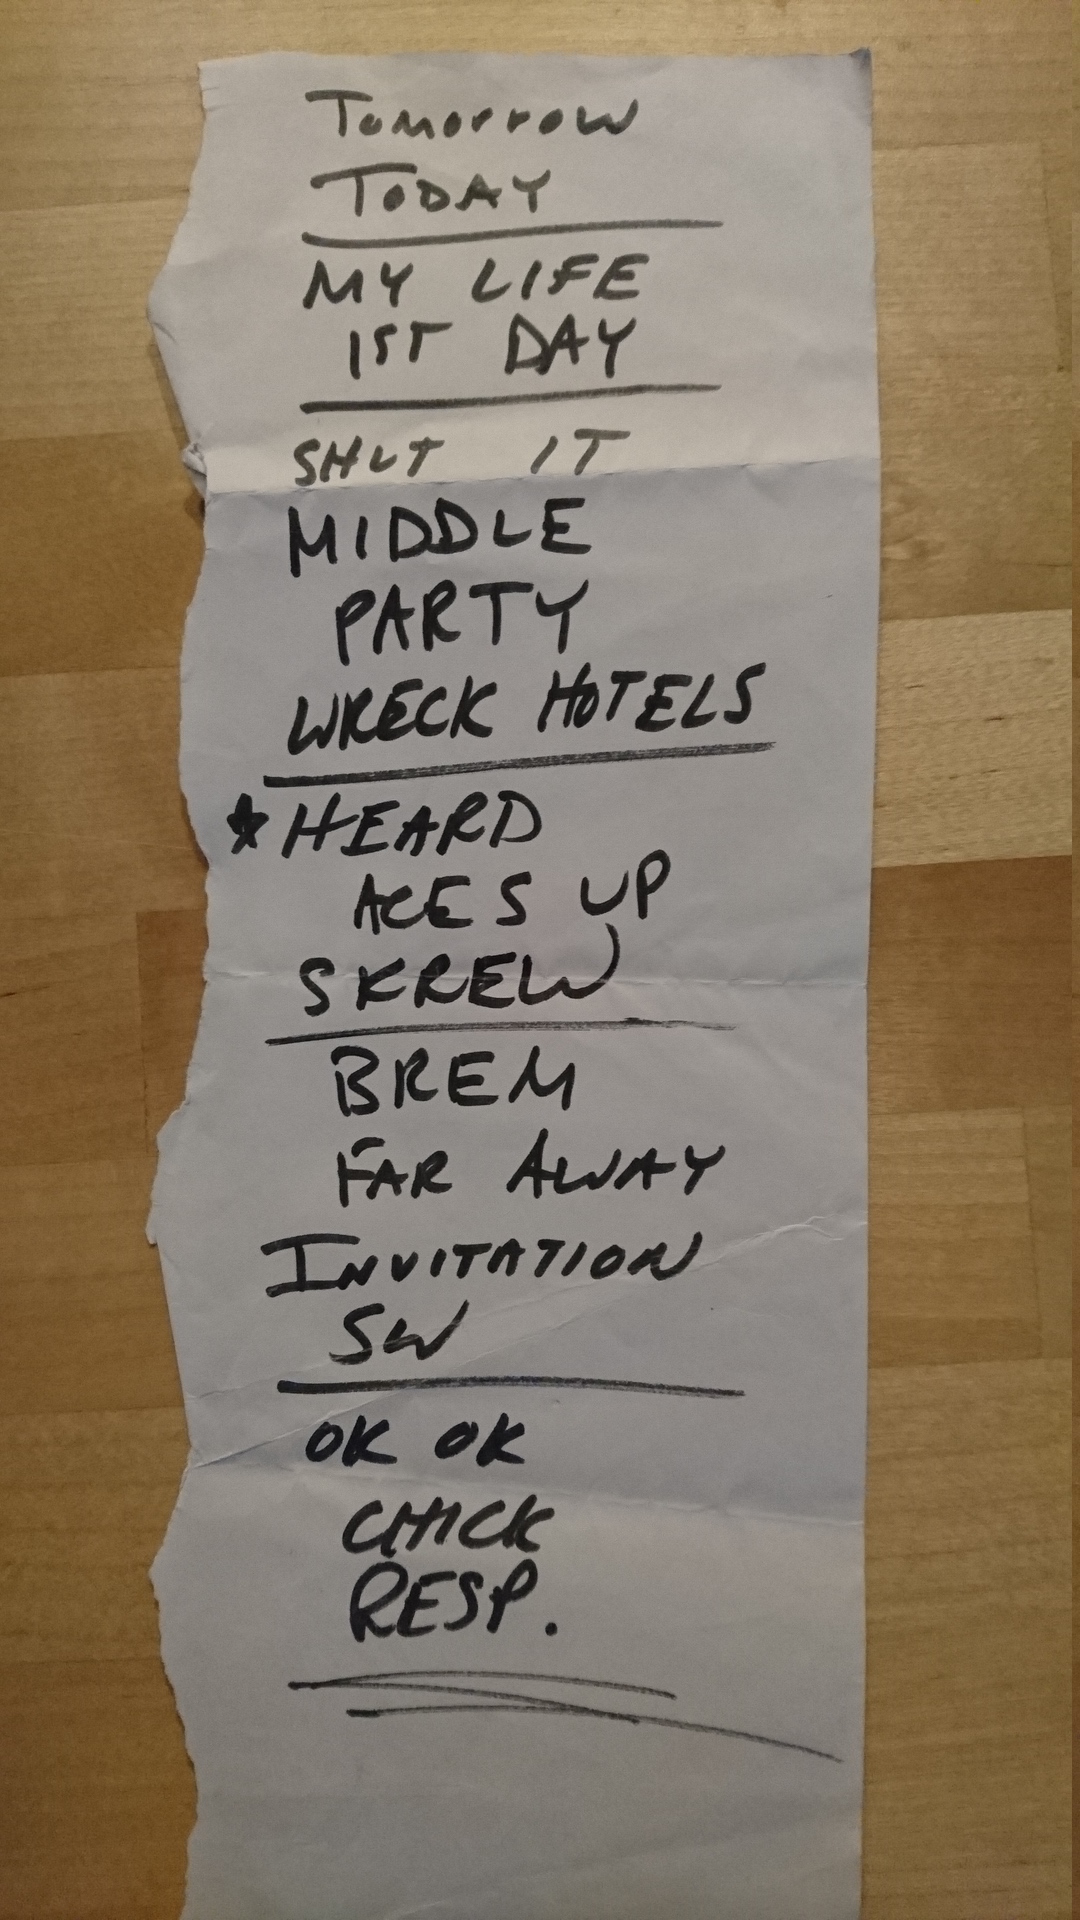 Tomorrow
TODAY
MY LIFE
1ST DAY
SHUT IT
MIDDLE
PARTY
WRECK HOTELS
★ HEARD
ACES UP
SKREW
BREM
FAR AWAY
INVITATION
SW
OK OK
CHICK
RESP.